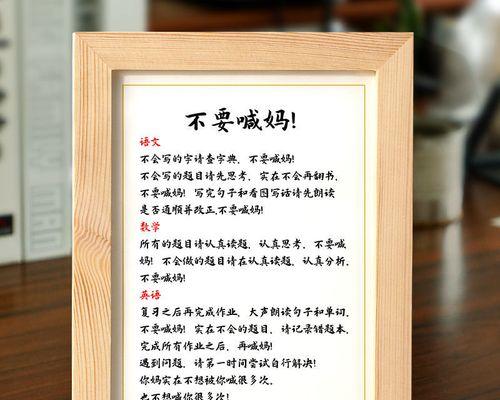 不要喊妈!
语文
不会写的字请查字典，不要喊妈!
不会写的题目请先思考，实在不会再翻书，
不要喊妈! 写完句子和看图写话请先朗读
是否通顺并改正，不要喊妈!
数学
所有的题目请认真读题，认真思考，不要喊
妈! 不会做的题目请在认真读题，认真分析，
不要喊妈!
英语
复习之后再完成作业，大声朗读句子和单词，
不要喊妈! 实在不会的题目，请记录错题本，
完成所有作业之后，再喊妈!
遇到问题，请第一时间尝试自行解决!
你妈实在不想被你喊很多次，
也不想喊你很多次!